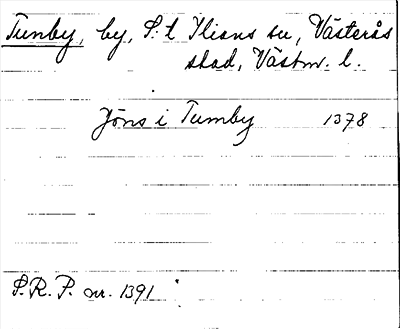 Tumby, by, S:t Ilians sn, Västerås
stad, Västm. l.
Jöns i Tumby 1378
S.R.P. nr. 1391